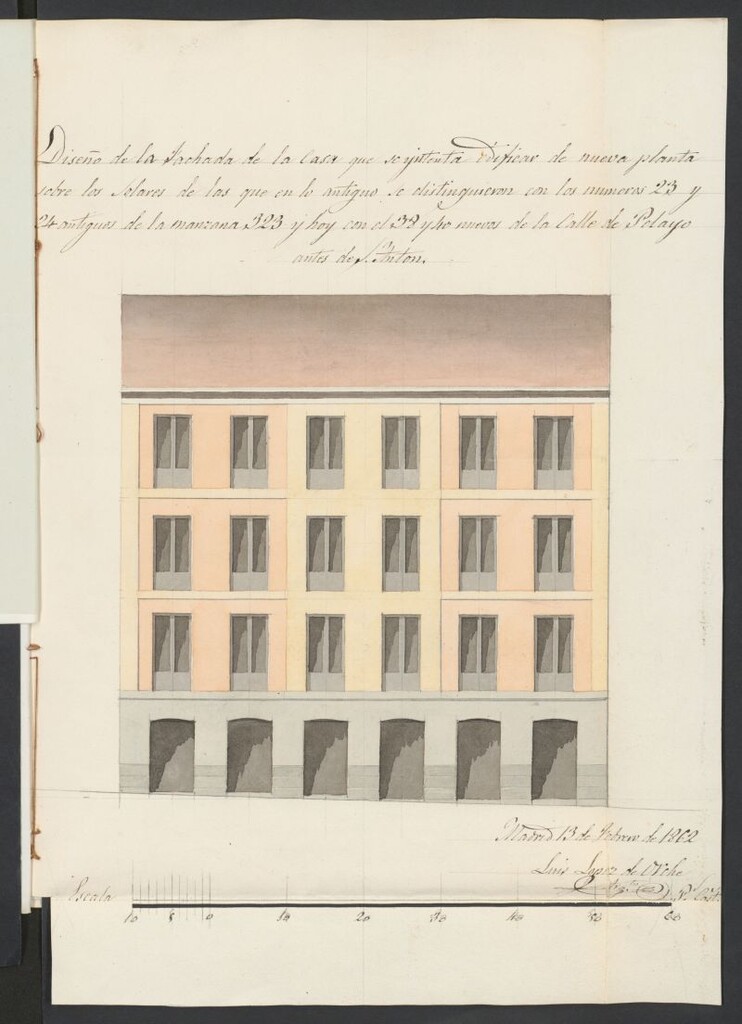 Diseño de la Fachada de la Casa que se intenta edificar de nueva planta
sobre los solares de las que en lo antiguo se distinguieron con los numeros 23 y
24 antiguos de la manzana 323 y hoy con el 38 y 40 nuevos de la Calle de Pelayo
antes de S. Anton.
Madrid 13 de Febrero de 1862
Luis Lopez de Orche
Escala
10 5 0 10 20 30 40 50 60